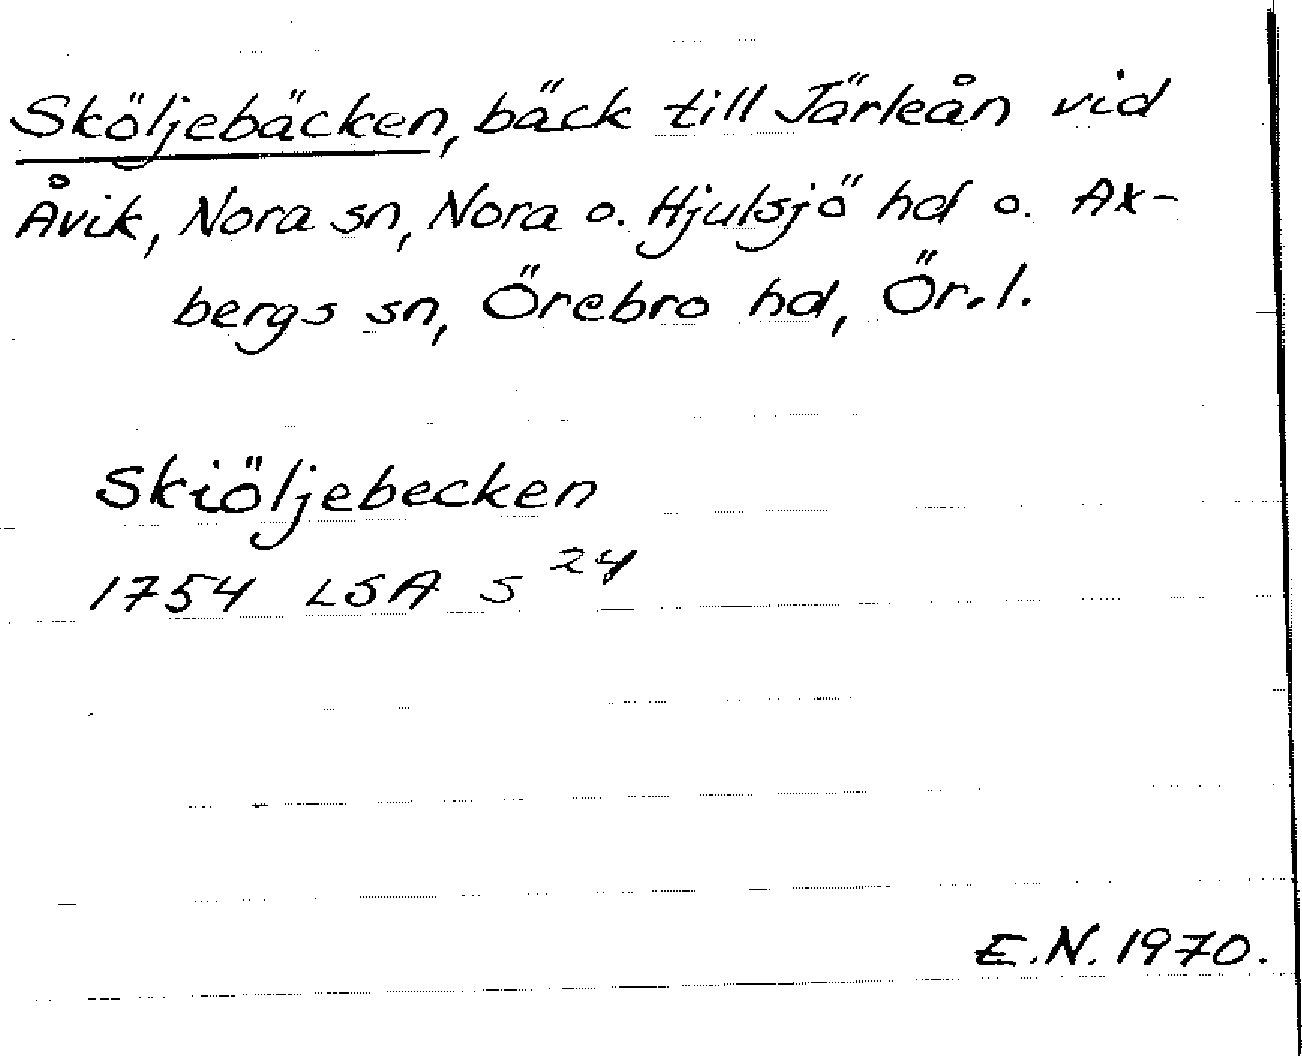 Sköljebäcken, bäck till Järleån vid
Åvik, Nora sn, Nora o. Hjulsjö hd o. Ax-
bergs sn, Örebro hd, Ör.l.
Skiöljebecken
1754 LSA S 24
E.N. 1970.